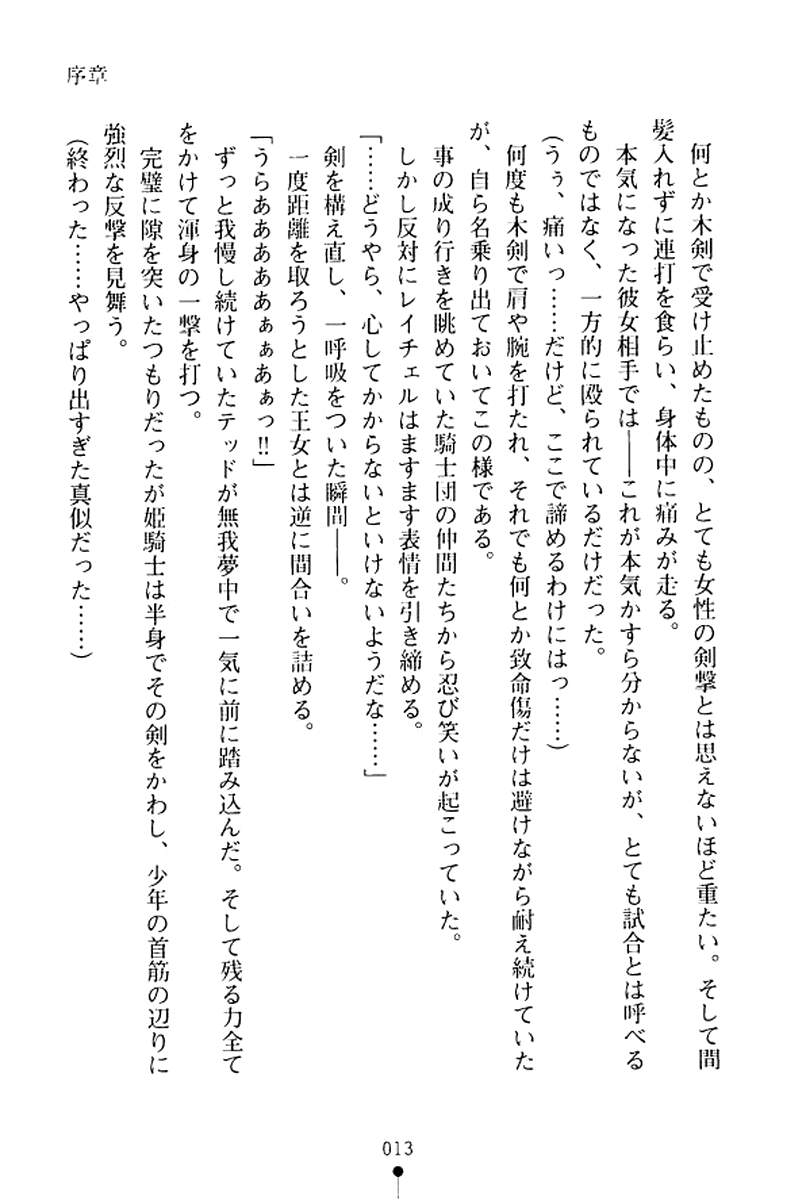 序章
何とか木剣で受け止めたものの、とても女性の剣撃とは思えないほど重たい。そして間
髪入れずに連打を食らい、身体中に痛みが走る。
本気になった彼女相手では――これが本気かすら分からないが、とても試合とは呼べる
ものではなく、一方的に殴られているだけだった。
（うぅ、痛いっ……だけど、ここで諦めるわけにはっ……）
何度も木剣で肩や腕を打たれ、それでも何とか致命傷だけは避けながら耐え続けていた
が、自ら名乗り出ておいてこの様である。
事の成り行きを眺めていた騎士団の仲間たちから忍び笑いが起こっていた。
しかし反対にレイチェルはますます表情を引き締める。
「……どうやら、心してかからないといけないようだな……」
剣を構え直し、一呼吸をついた瞬間――。
一度距離を取ろうとした王女とは逆に間合いを詰める。
「うらああああああぁぁあぁっ!!」
ずっと我慢し続けていたテッドが無我夢中で一気に前に踏み込んだ。そして残る力全て
をかけて渾身の一撃を打つ。
完璧に隙を突いたつもりだったが姫騎士は半身でその剣をかわし、少年の首筋の辺りに
強烈な反撃を見舞う。
（終わった……やっぱり出すぎた真似だった……）
013